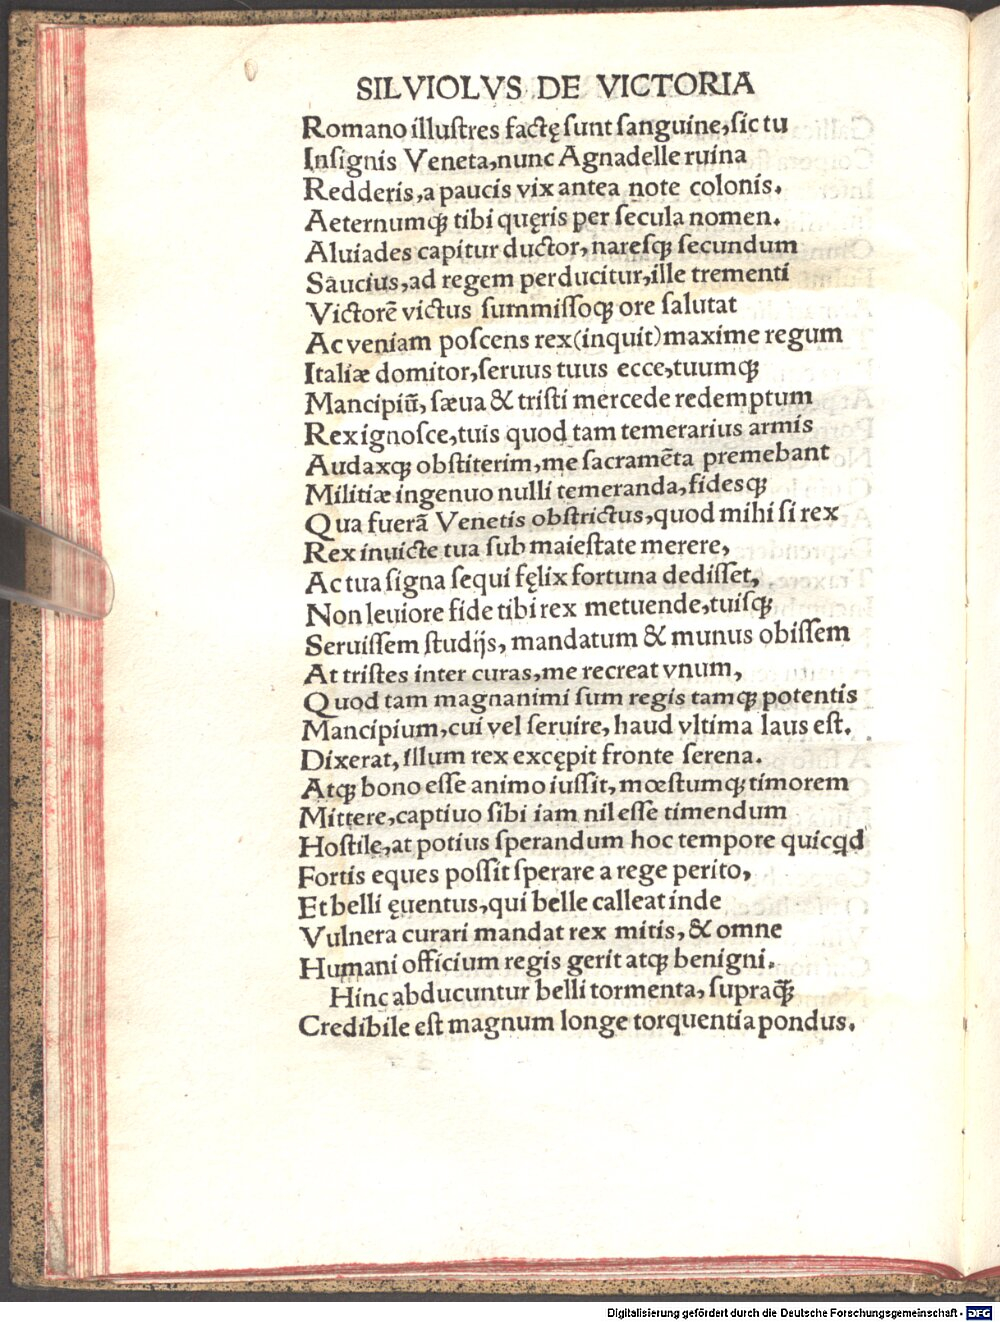 SILVIOLVS DE VICTORIA
Romano illuſtres factę ſunt ſanguine, ſic tu
Inſignis Veneta, nunc Agnadelle ruina
Redderis, a paucis vix antea note colonis.
Aeternumqꝫ tibi quęris per ſecula nomen.
Aluiades capitur ductor, nareſqꝫ ſecundum
Saucius, ad regem perducitur, ille trementi
Victorē victus ſummiſſoqꝫ ore ſalutat
Ac veniam poſcens rex (inquit) maxime regum
Italiæ domitor, ſeruus tuus ecce, tuumqꝫ
Mancipiū, ſæua & triſti mercede redemptum
Rex ignoſce, tuis quod tam temerarius armis
Audaxqꝫ obſtiterim, me ſacramēta premebant
Militiæ ingenuo nulli temeranda, fidesqꝫ
Qua fuerā Venetis obſtrictus, quod mihi ſi rex
Rex inuicte tua ſub maieſtate merere,
Ac tua ſigna ſequi fęlix fortuna dediſſet,
Non leuiore fide tibi rex metuende, tuiſqꝫ
Seruiſſem ſtudijs, mandatum & munus obiſſem
At triſtes inter curas, me recreat vnum,
Quod tam magnanimi ſum regis tamqꝫ potentis
Mancipium, cui vel ſeruire, haud vltima laus eſt.
Dixerat, illum rex excępit fronte ſerena.
Atqꝫ bono eſſe animo iuſſit, mœſtumqꝫ timorem
Mittere, captiuo ſibi iam nil eſſe timendum
Hoſtile, at potius ſperandum hoc tempore quicqd
Fortis eques poſſit ſperare a rege perito,
Et belli ęuentus, qui belle calleat inde
Vulnera curari mandat rex mitis, & omne
Humani officium regis gerit atqꝫ benigni.
Hinc abducuntur belli tormenta, ſupraqꝫ̄
Credibile eſt magnum longe torquentia pondus.
Digitalisierung gefördert durch die Deutsche Forschungsgemeinschaft - DFG